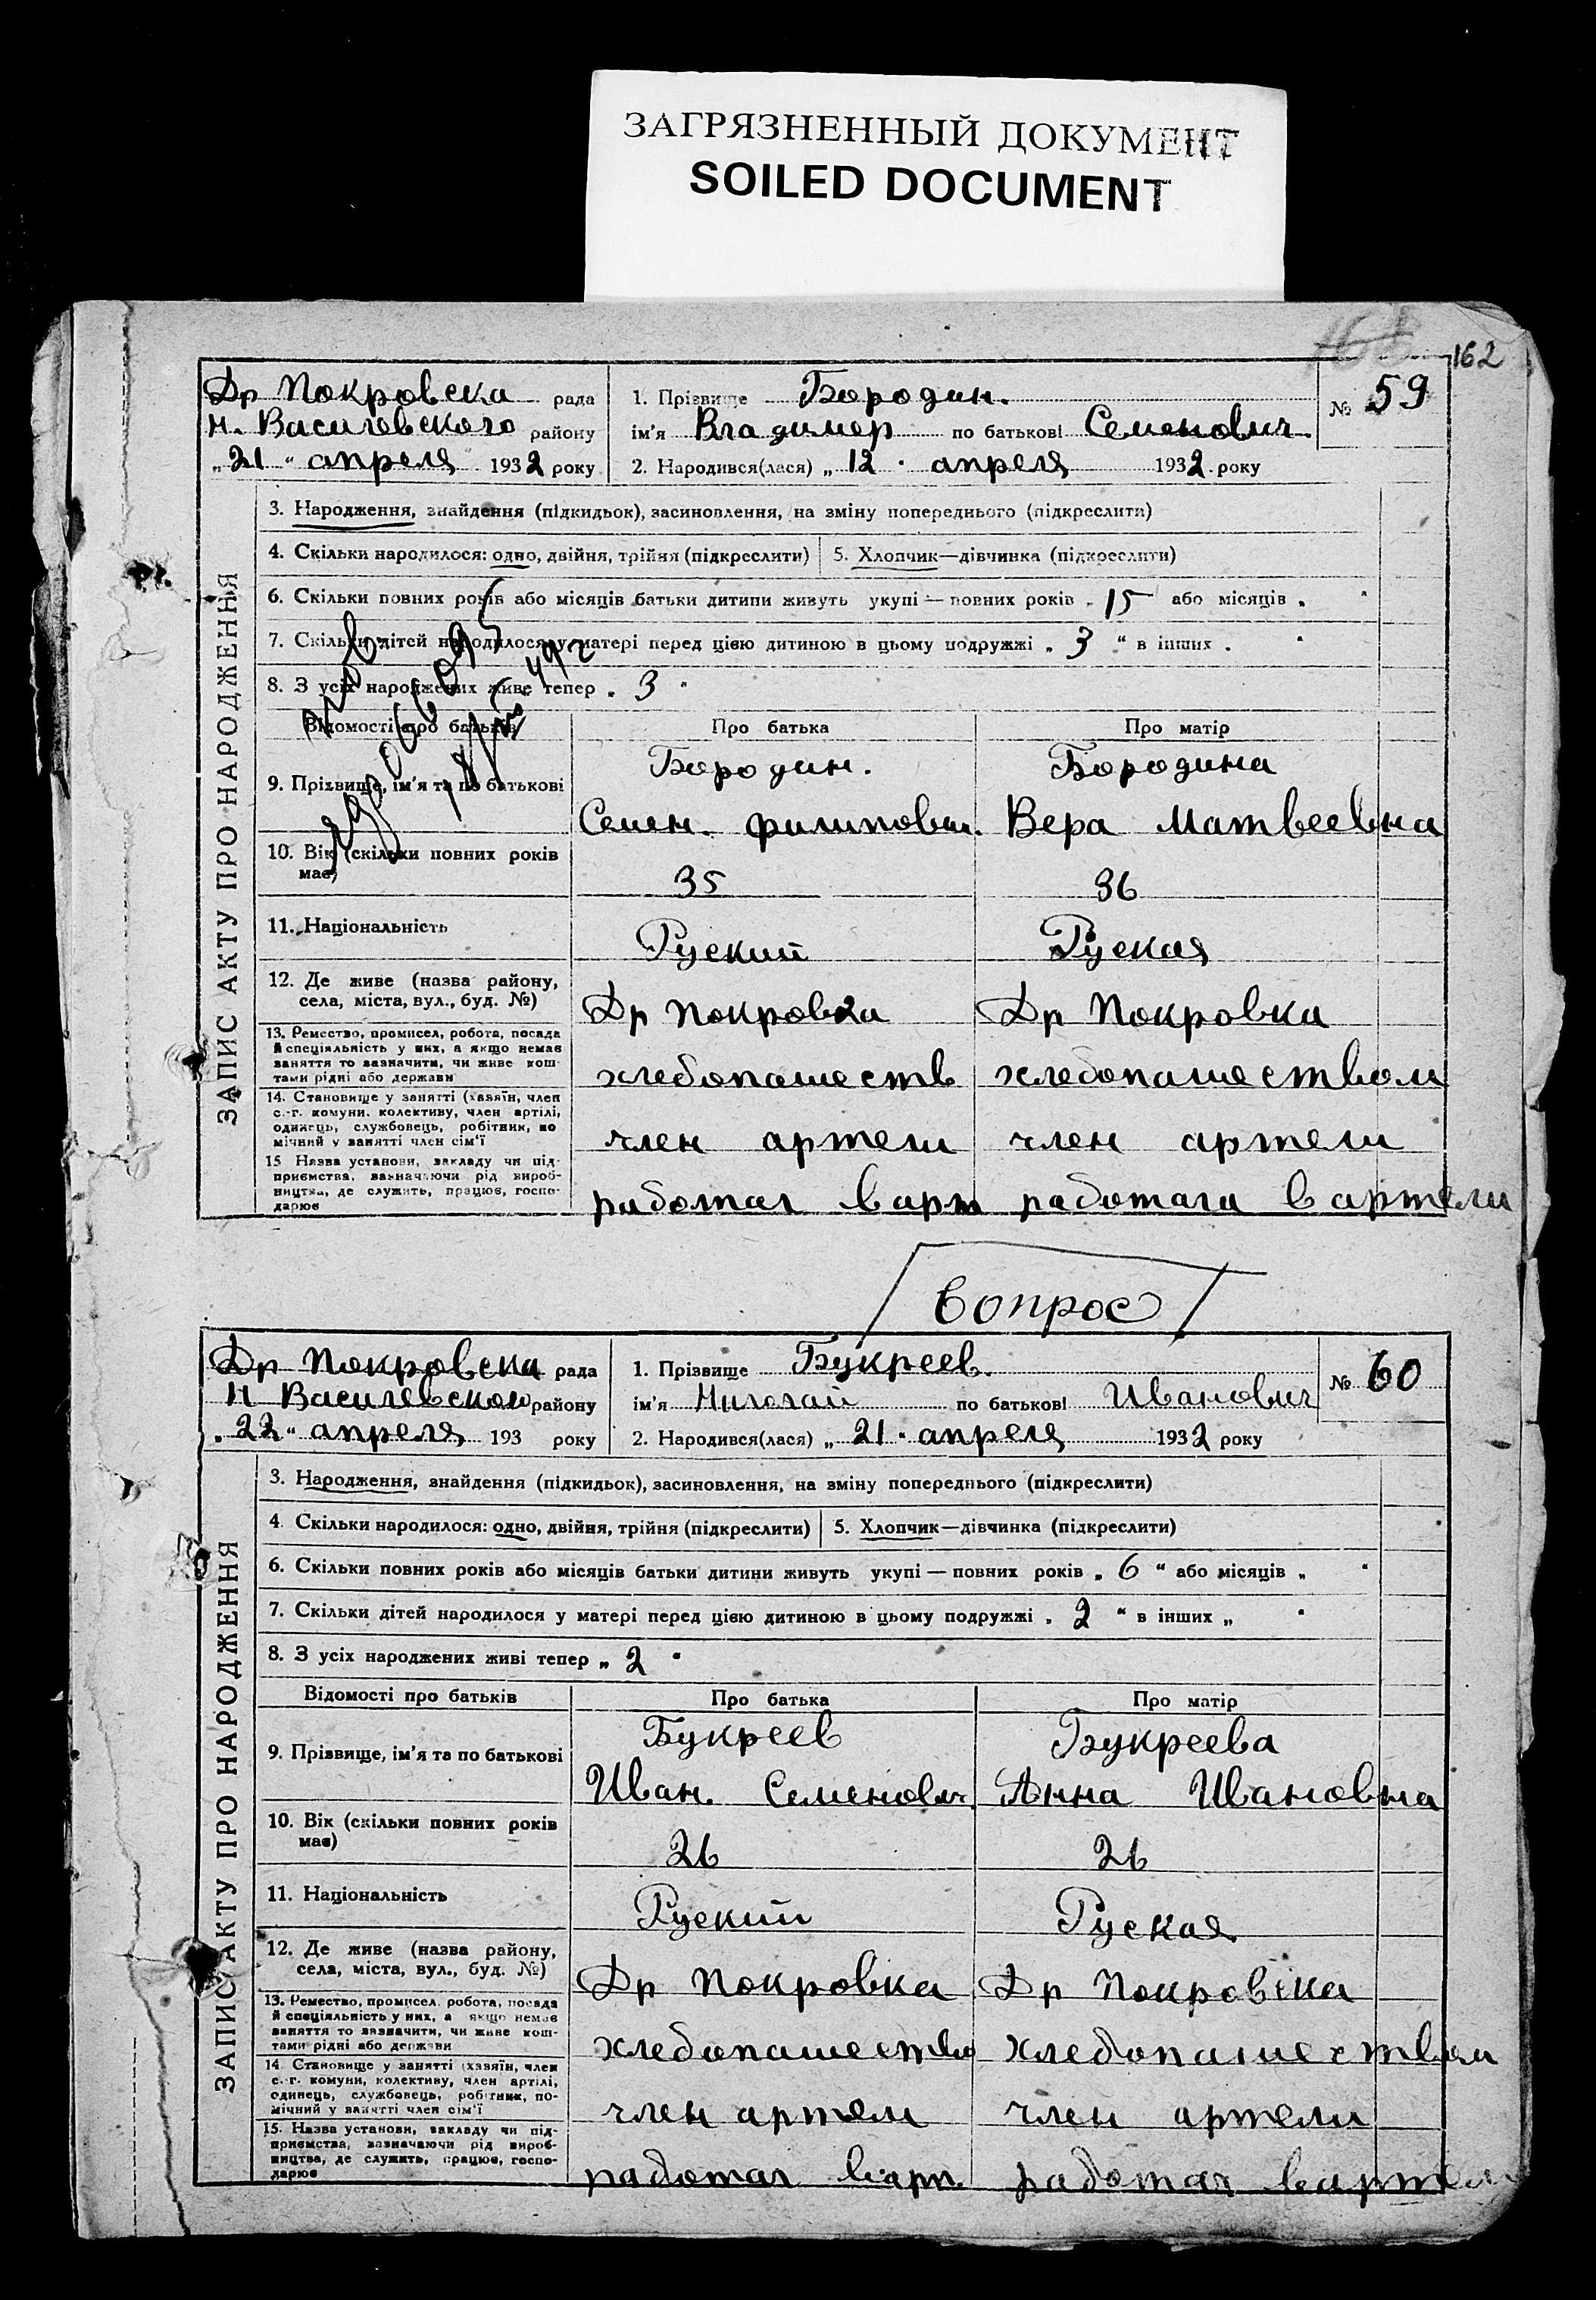 ЗАГРЯЗНЕННЫЙ ДОКУМЕНТ
SOILED DOCUMENT
162
Др Покровска рада
н. Василевского району
„21“ апреля 1932 року
1. Прізвище Бородин.
ім'я Владимер по батькові Семенович.
2. Народився(лася) „12“ апреля 1932 року
№ 59
ЗАПИС АКТУ ПРО НАРОДЖЕННЯ
3. Народження, знайдення (підкидьок), засиновлення, на зміну попереднього (підкреслити)
4. Скільки народилося: одно, двійня, трійня (підкреслити) 5. Хлопчик—дівчинка (підкреслити)
6. Скільки повних років або місяців батьки дитини живуть укупі — повних років „15 або місяців „ “
7. Скільки дітей народилося у матері перед цією дитиною в цьому подружжі „3“ в інших „ “
8. З усіх народжених живе тепер „3“
Відомості про батьків Про батька Про матір
9. Прізвище, ім'я та по батькові Бородин. Бородина
Семен. Филипович. Вера Матвеевна
10. Вік (скільки повних років має) 35 36
11. Національність Руский Руская
12. Де живе (назва району, села, міста, вул., буд. №) Др Покровка Др Покровка
13. Ремество, промисел, робота, посада й спеціяльність у них, а якщо немає заняття то зазначити, чи живе коштами рідні або держави хлебопашеств хлебопашеством
14. Становище у занятті (хазяїн, член с.-г. комуни, колективу, член артілі, одинець, службовець, робітник, помічний у занятті член сім'ї член артели член артели
15. Назва установи, закладу чи підприємства, зазначаючи рід виробництва, де служить, працює, господарює работал в арт работала в артели
Вопрос
Др Покровска рада
Н Василевского району
„22“ апреля 193 року
1. Прізвище Букреев.
ім'я Николай по батькові Иванович
2. Народився(лася) „21“ апреля 1932 року
№ 60
ЗАПИС АКТУ ПРО НАРОДЖЕННЯ
3. Народження, знайдення (підкидьок), засиновлення, на зміну попереднього (підкреслити)
4. Скільки народилося: одно, двійня, трійня (підкреслити) 5. Хлопчик—дівчинка (підкреслити)
6. Скільки повних років або місяців батьки дитини живуть укупі — повних років „6“ або місяців „ “
7. Скільки дітей народилося у матері перед цією дитиною в цьому подружжі „2“ в інших „ “
8. З усіх народжених живі тепер „2“
Відомості про батьків Про батька Про матір
9. Прізвище, ім'я та по батькові Букреев Букреева
Иван. Семенович. Анна Ивановна
10. Вік (скільки повних років має) 26 26
11. Національність Руский Руская
12. Де живе (назва району, села, міста, вул., буд. №) Др Покровка Др Покровка
13. Ремество, промисел, робота, посада й спеціяльність у них, а якщо немає заняття то зазначити, чи живе коштами рідні або держави хлебопашество хлебопашеством
14. Становище у занятті (хазяїн, член с.-г. комуни, колективу, член артілі, одинець, службовець, робітник, помічний у занятті член сім'ї член артели член артели
15. Назва установи, закладу чи підприємства, зазначаючи рід виробництва, де служить, працює, господарює работал в арт. работал в артели